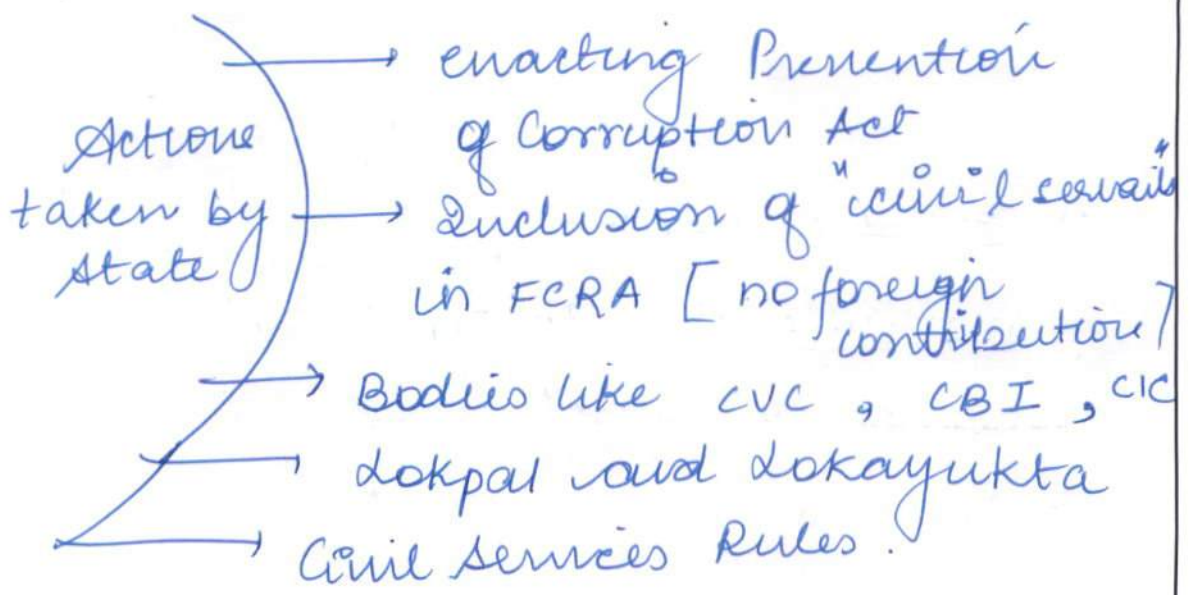 Actions
taken by
state
→ enacting Prevention
of Corruption Act
→ Inclusion of "civil servants"
in FCRA [no foreign
contribution]
→ Bodies like CVC, CBI, CIC
→ Lokpal and Lokayukta
→ Civil Services Rules.